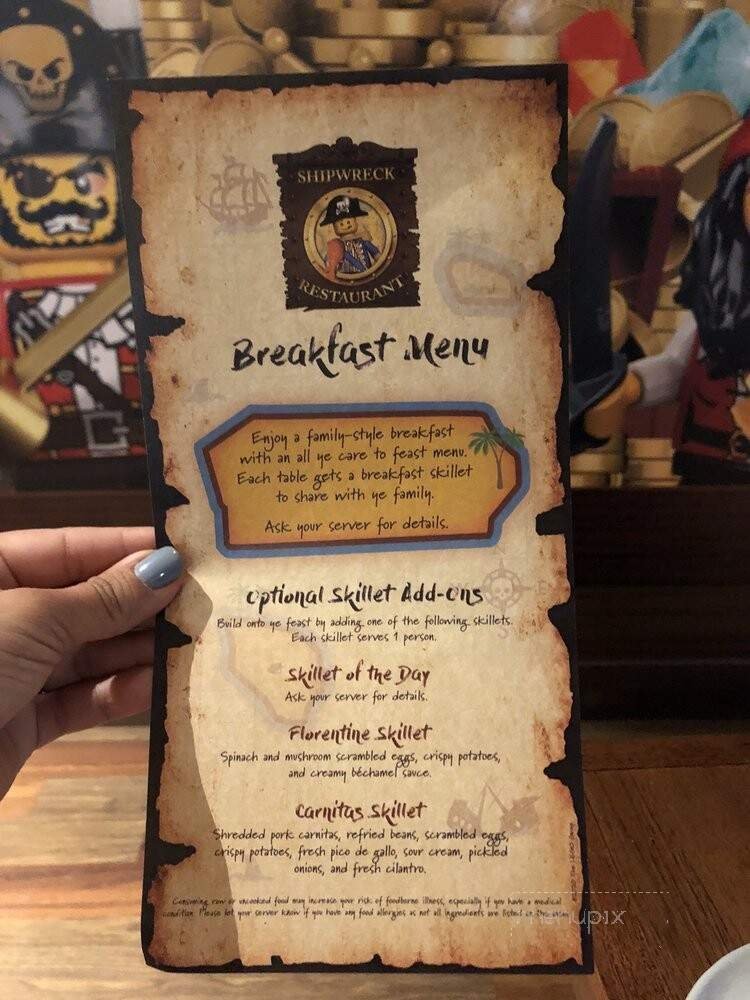 SHIPWRECK
RESTAURANT
Breakfast Menu
Enjoy a family-style breakfast
with an all ye care to feast menu.
Each table gets a breakfast skillet
to share with ye family.
Ask your server for details.
Optional Skillet Add-Ons
Build onto ye feast by adding one of the following skillets.
Each skillet serves 1 person.
Skillet of the Day
Ask your server for details.
Florentine Skillet
Spinach and mushroom scrambled eggs, crispy potatoes,
and creamy béchamel sauce.
Carnitas Skillet
Shredded pork carnitas, refried beans, scrambled eggs,
crispy potatoes, fresh pico de gallo, sour cream, pickled
onions, and fresh cilantro.
Consuming raw or uncooked food may increase your risk of foodborne illness, especially if you have a medical
condition. Please let your server know if you have any food allergies as not all ingredients are listed on the menu
menupix